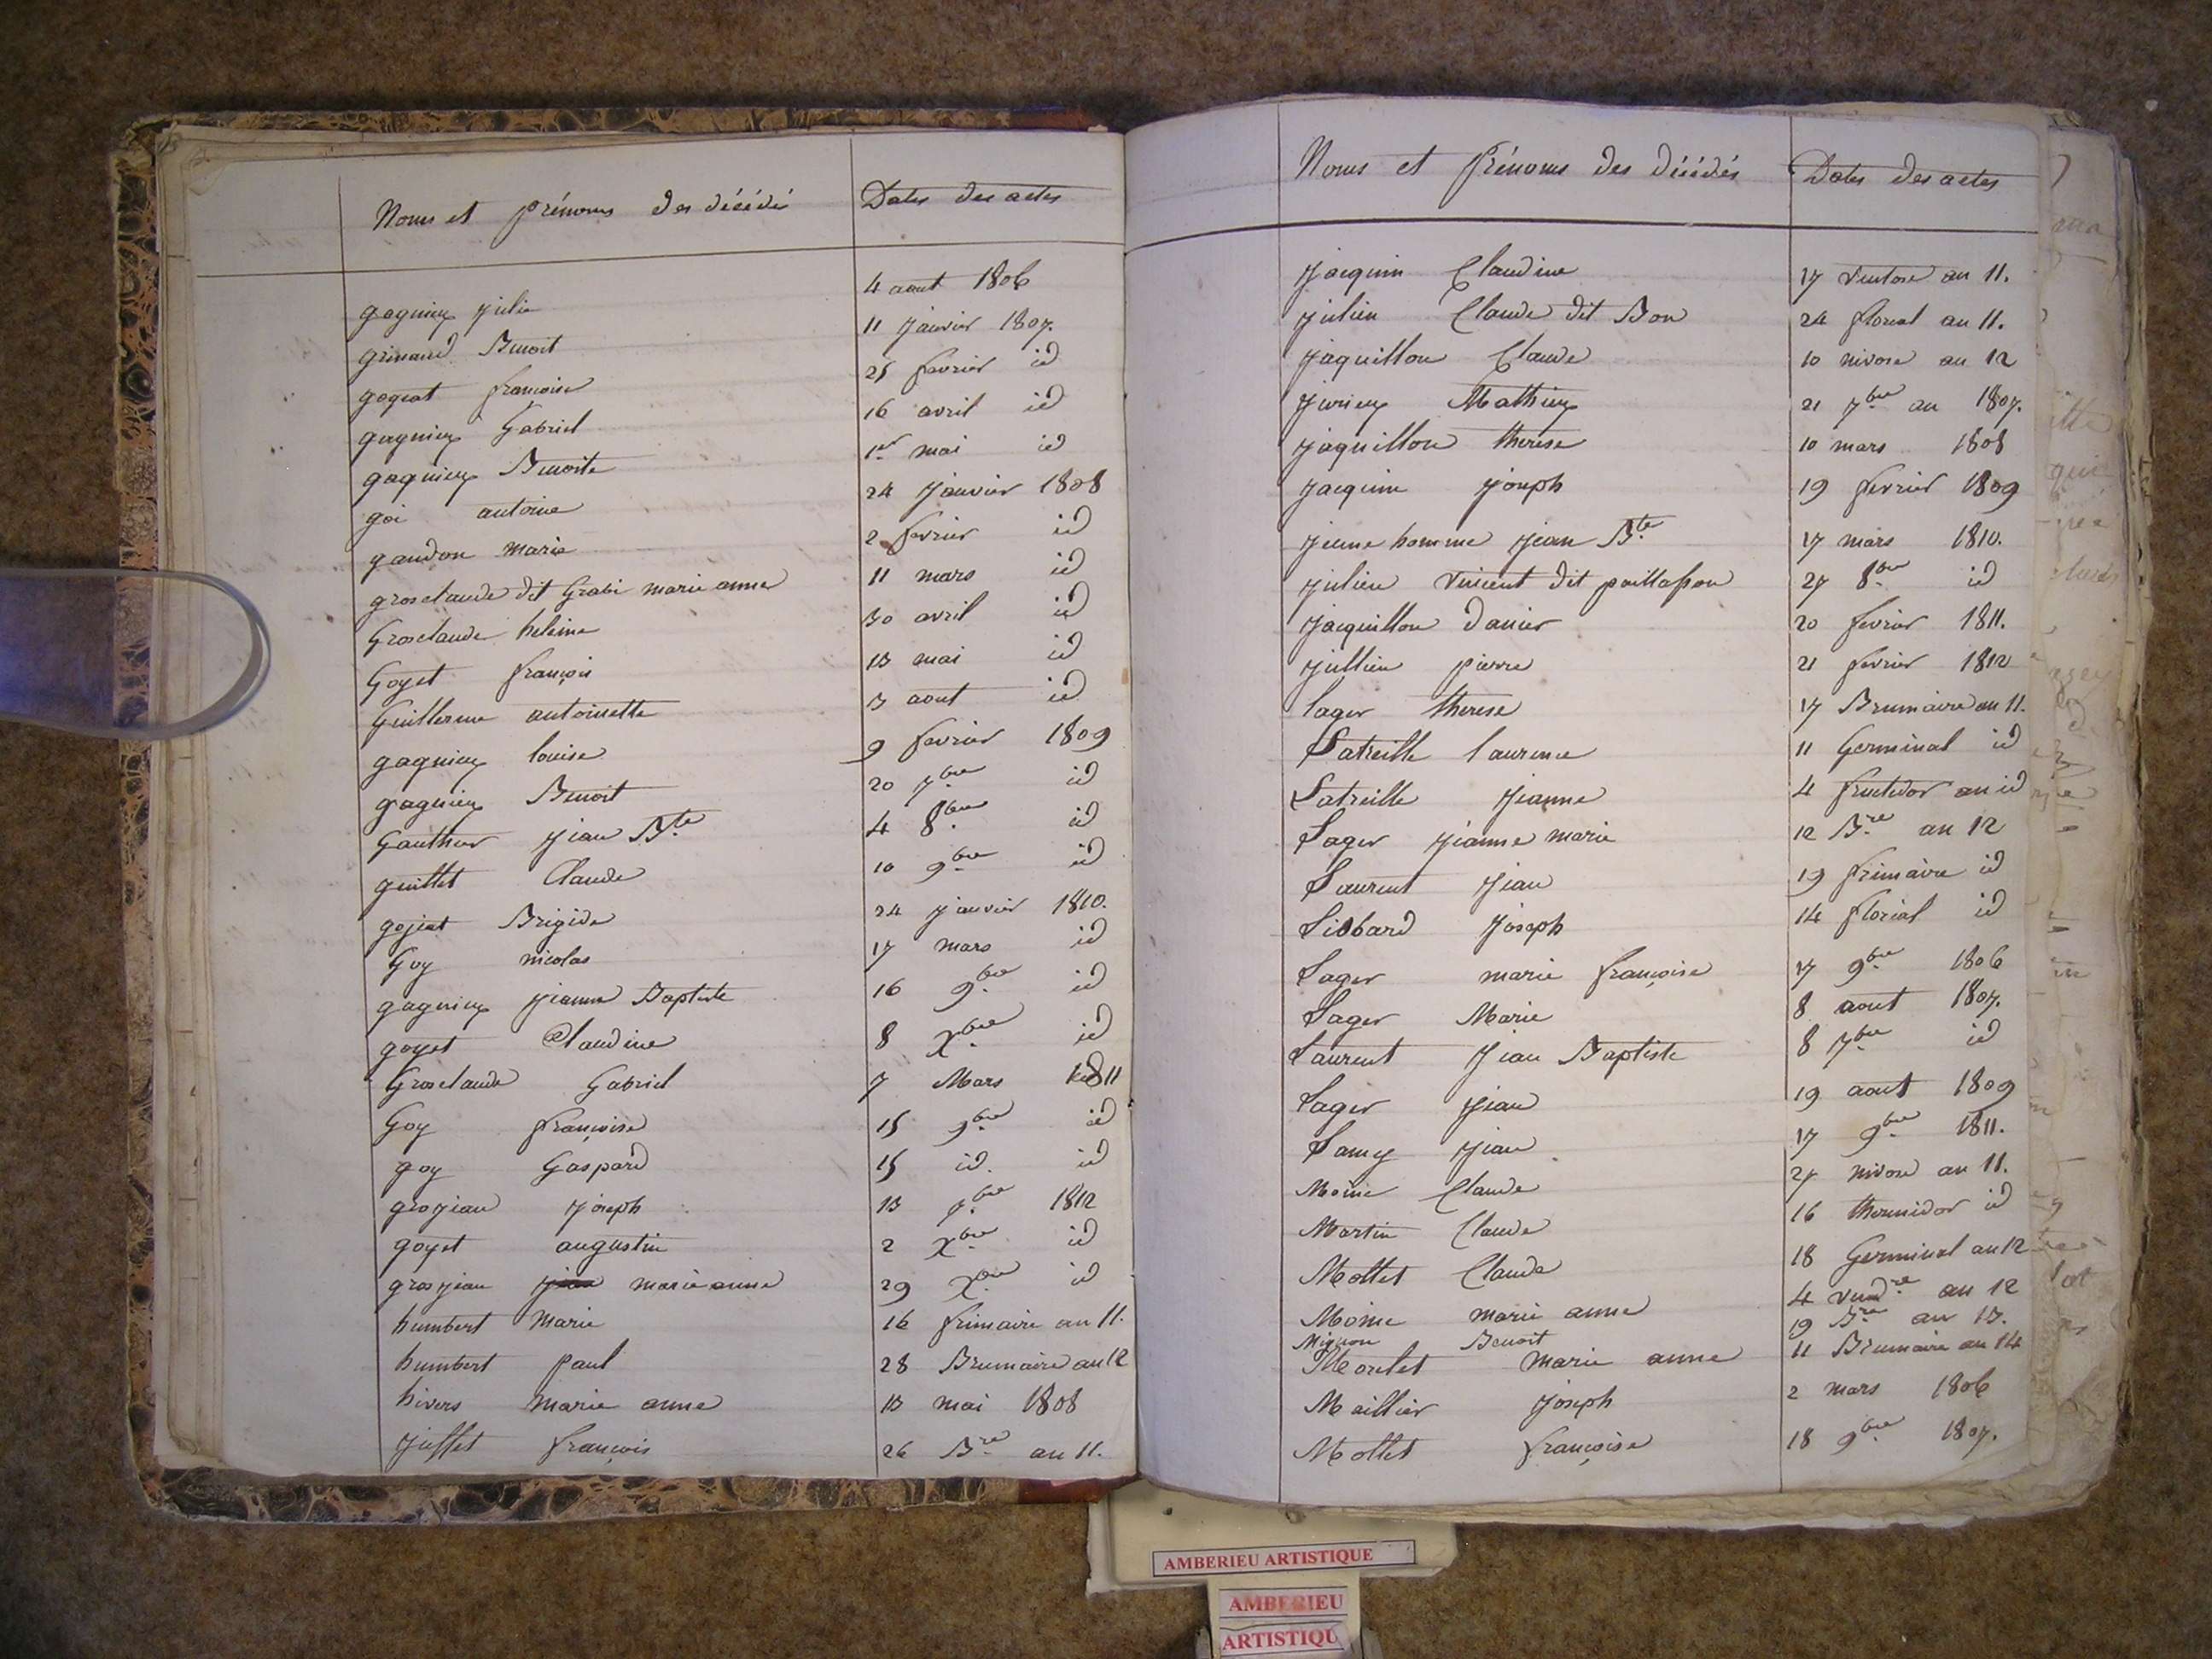 Noms et prénoms des décédés Dates des actes
gagnieux julie 4 aout 1806
grinand Benoit 11 janvier 1807.
gogeat françoise 25 fevrier id
gagnieux Gabriel 16 avril id
gagnieux Benoite 1er mai id
goi antoine 24 janvier 1808
gaudon marie 2 fevrier id
grosclaude dit Grabi marie anne 11 mars id
Grosclaude heleine 30 avril id
Goyet françois 13 mai id
Guillerme antoinette 3 aout id
gagnieux louise 9 fevrier 1809
gagnieux Benoit 20 7bre id
Gauthier jean Bte 4 8bre id
guillet Claude 10 9bre id
gojeat Brigide 24 janvier 1810.
Goy nicolas 17 mars id
gagnieux jeanne Baptiste 16 9bre id
goyet Claudine 8 Xbre id
Grosclaude Gabriel 7 Mars 1811
Goy françoise 15 9bre id
goy Gaspard 15 id. id
grosjean joseph 13 7bre 1812
goyet augustin 2 Xbre id
grosjean jean marie anne 29 Xbre id
humbert Marie 16 frimaire an 11.
humbert paul 28 Brumaire an 12
hivers marie anne 13 mai 1808
juffet françois 26 Bre an 11.
Noms et Prénoms des décédés Dates des actes
jacquin Claudine 17 Ventose an 11.
julien Claude dit Bon 24 floreal an 11.
jaquillon Claude 10 nivose an 12
jurieux Mathieux 21 7bre an 1807.
jaquillon therese 10 mars 1808
jacquin joseph 19 fevrier 1809
jeune homme jean Bte 17 mars 1810.
julien vincent dit paillasson 27 8bre id
jacquillon danier 20 fevrier 1811.
jullien pierre 21 fevrier 1812
lager therese 17 Brumaire an 11.
Latreille laurence 11 Germinal id
Latreille jeanne 4 fructidor an id
Lager jeanne marie 12 Bre an 12
Laurent jean 19 frimaire id
Liobard joseph 14 floreal id
Lager marie françoise 17 9bre 1806
Lager Marie 8 aout 1807.
Laurent jean Baptiste 8 7bre id
Lager jean 19 aout 1809
Lamy jean 17 9bre 1811.
Moine Claude 27 nivose an 11.
Martin Claude 16 thermidor id
Mollet Claude 18 Germinal an 12
Moine marie anne 4 vendre an 12
Mignon Benoit 19 Bre an 13.
Morelet marie anne 11 Brumaire an 14
Maillier joseph 2 mars 1806
Mollet françoise 18 9bre 1807.
AMBERIEU ARTISTIQUE
AMBERIEU
ARTISTIQU